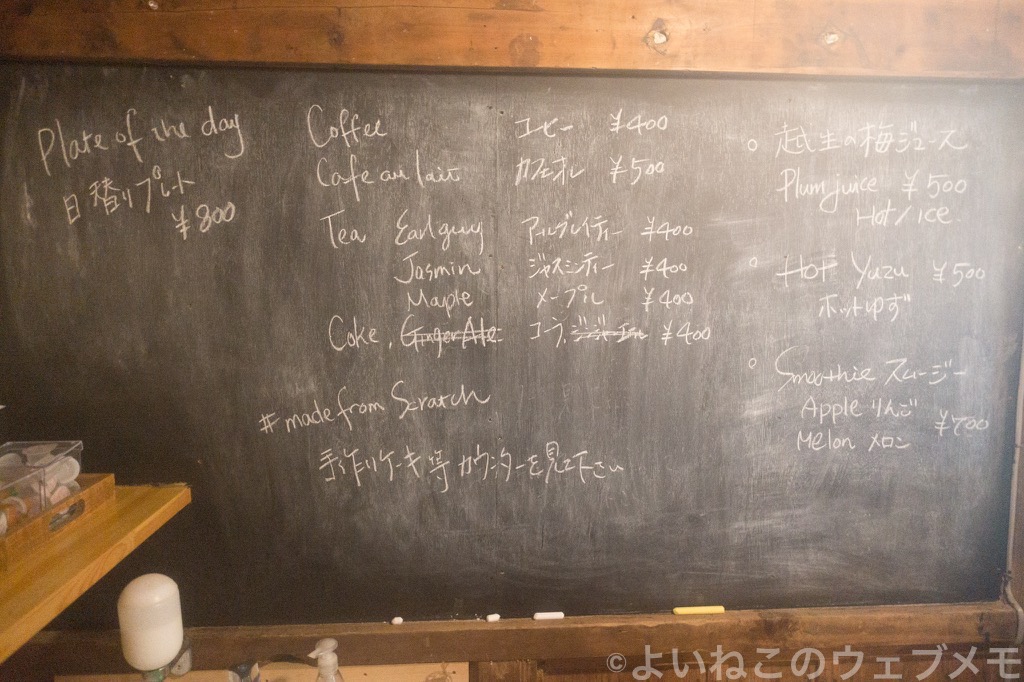 Plate of the day
日替りプレート
¥800
Coffee コーヒー ¥400
Cafe au lait カフェオレ ¥500
Tea Earlguy アールグレイティー ¥400
Jasmin ジャスミンティー ¥400
Maple メープル ¥400
Coke, Ginger Ale コーラ, ジンジャーエール ¥400
#made from Scratch
手作りケーキ等カウンターを見て下さい
越生の梅ジュース
Plum juice ¥500
Hot / ice
Hot Yuzu ¥500
ホットゆず
Smoothie スムージー
Apple りんご
¥700
Melon メロン
©よいねこのウェブメモ